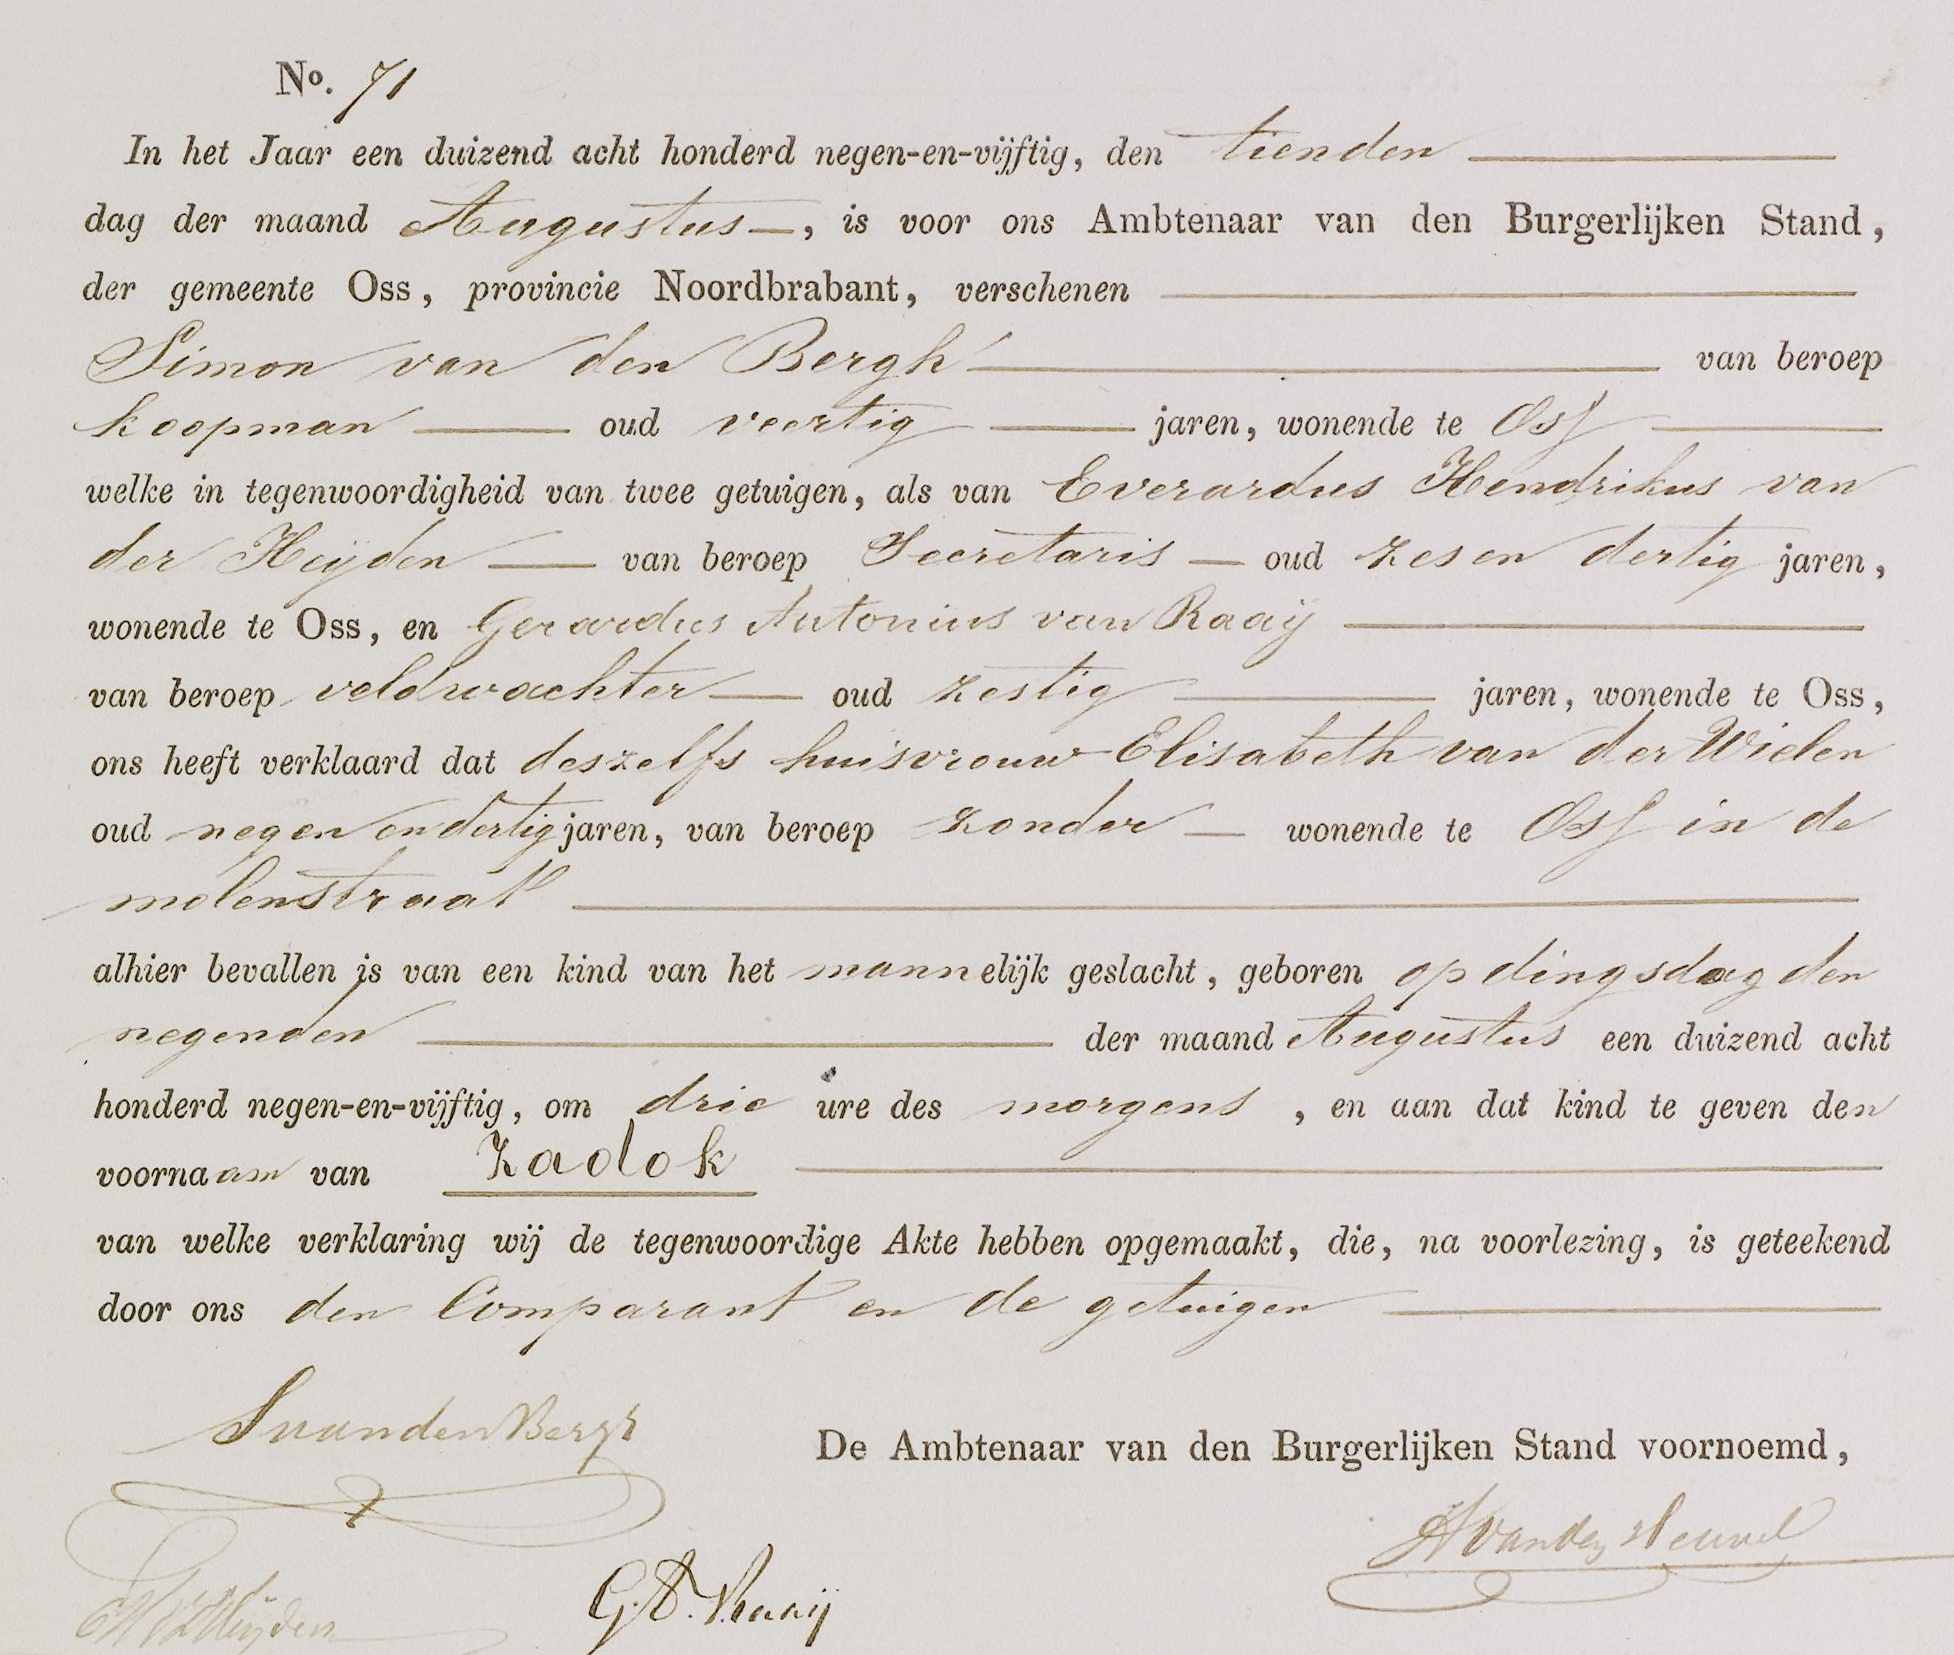 No. 71
In het Jaar een duizend acht honderd negen-en-vijftig, den tienden
dag der maand Augustus, is voor ons Ambtenaar van den Burgerlijken Stand,
der gemeente Oss, provincie Noordbrabant, verschenen
Simon van den Bergh van beroep
koopman oud veertig jaren, wonende te Oss
welke in tegenwoordigheid van twee getuigen, als van Everardus Hendrikus van
der Heijden van beroep Secretaris oud zes en dertig jaren,
wonende te Oss, en Gerardus Antonius van Raaij
van beroep veldwachter oud zestig jaren, wonende te Oss,
ons heeft verklaard dat deszelfs huisvrouw Elisabeth van der Wielen
oud negen en dertig jaren, van beroep zonder wonende te Oss in de
molenstraat
alhier bevallen is van een kind van het mannelijk geslacht, geboren op dingsdag den
negenden der maand Augustus een duizend acht
honderd negen-en-vijftig, om drie ure des morgens, en aan dat kind te geven den
voornaam van Zadok
van welke verklaring wij de tegenwoordige Akte hebben opgemaakt, die, na voorlezing, is geteekend
door ons den Comparant en de getuigen
SvandenBergh
De Ambtenaar van den Burgerlijken Stand voornoemd,
HvandenHeuvel
EHVdHeijden
G.A. V.Raaij